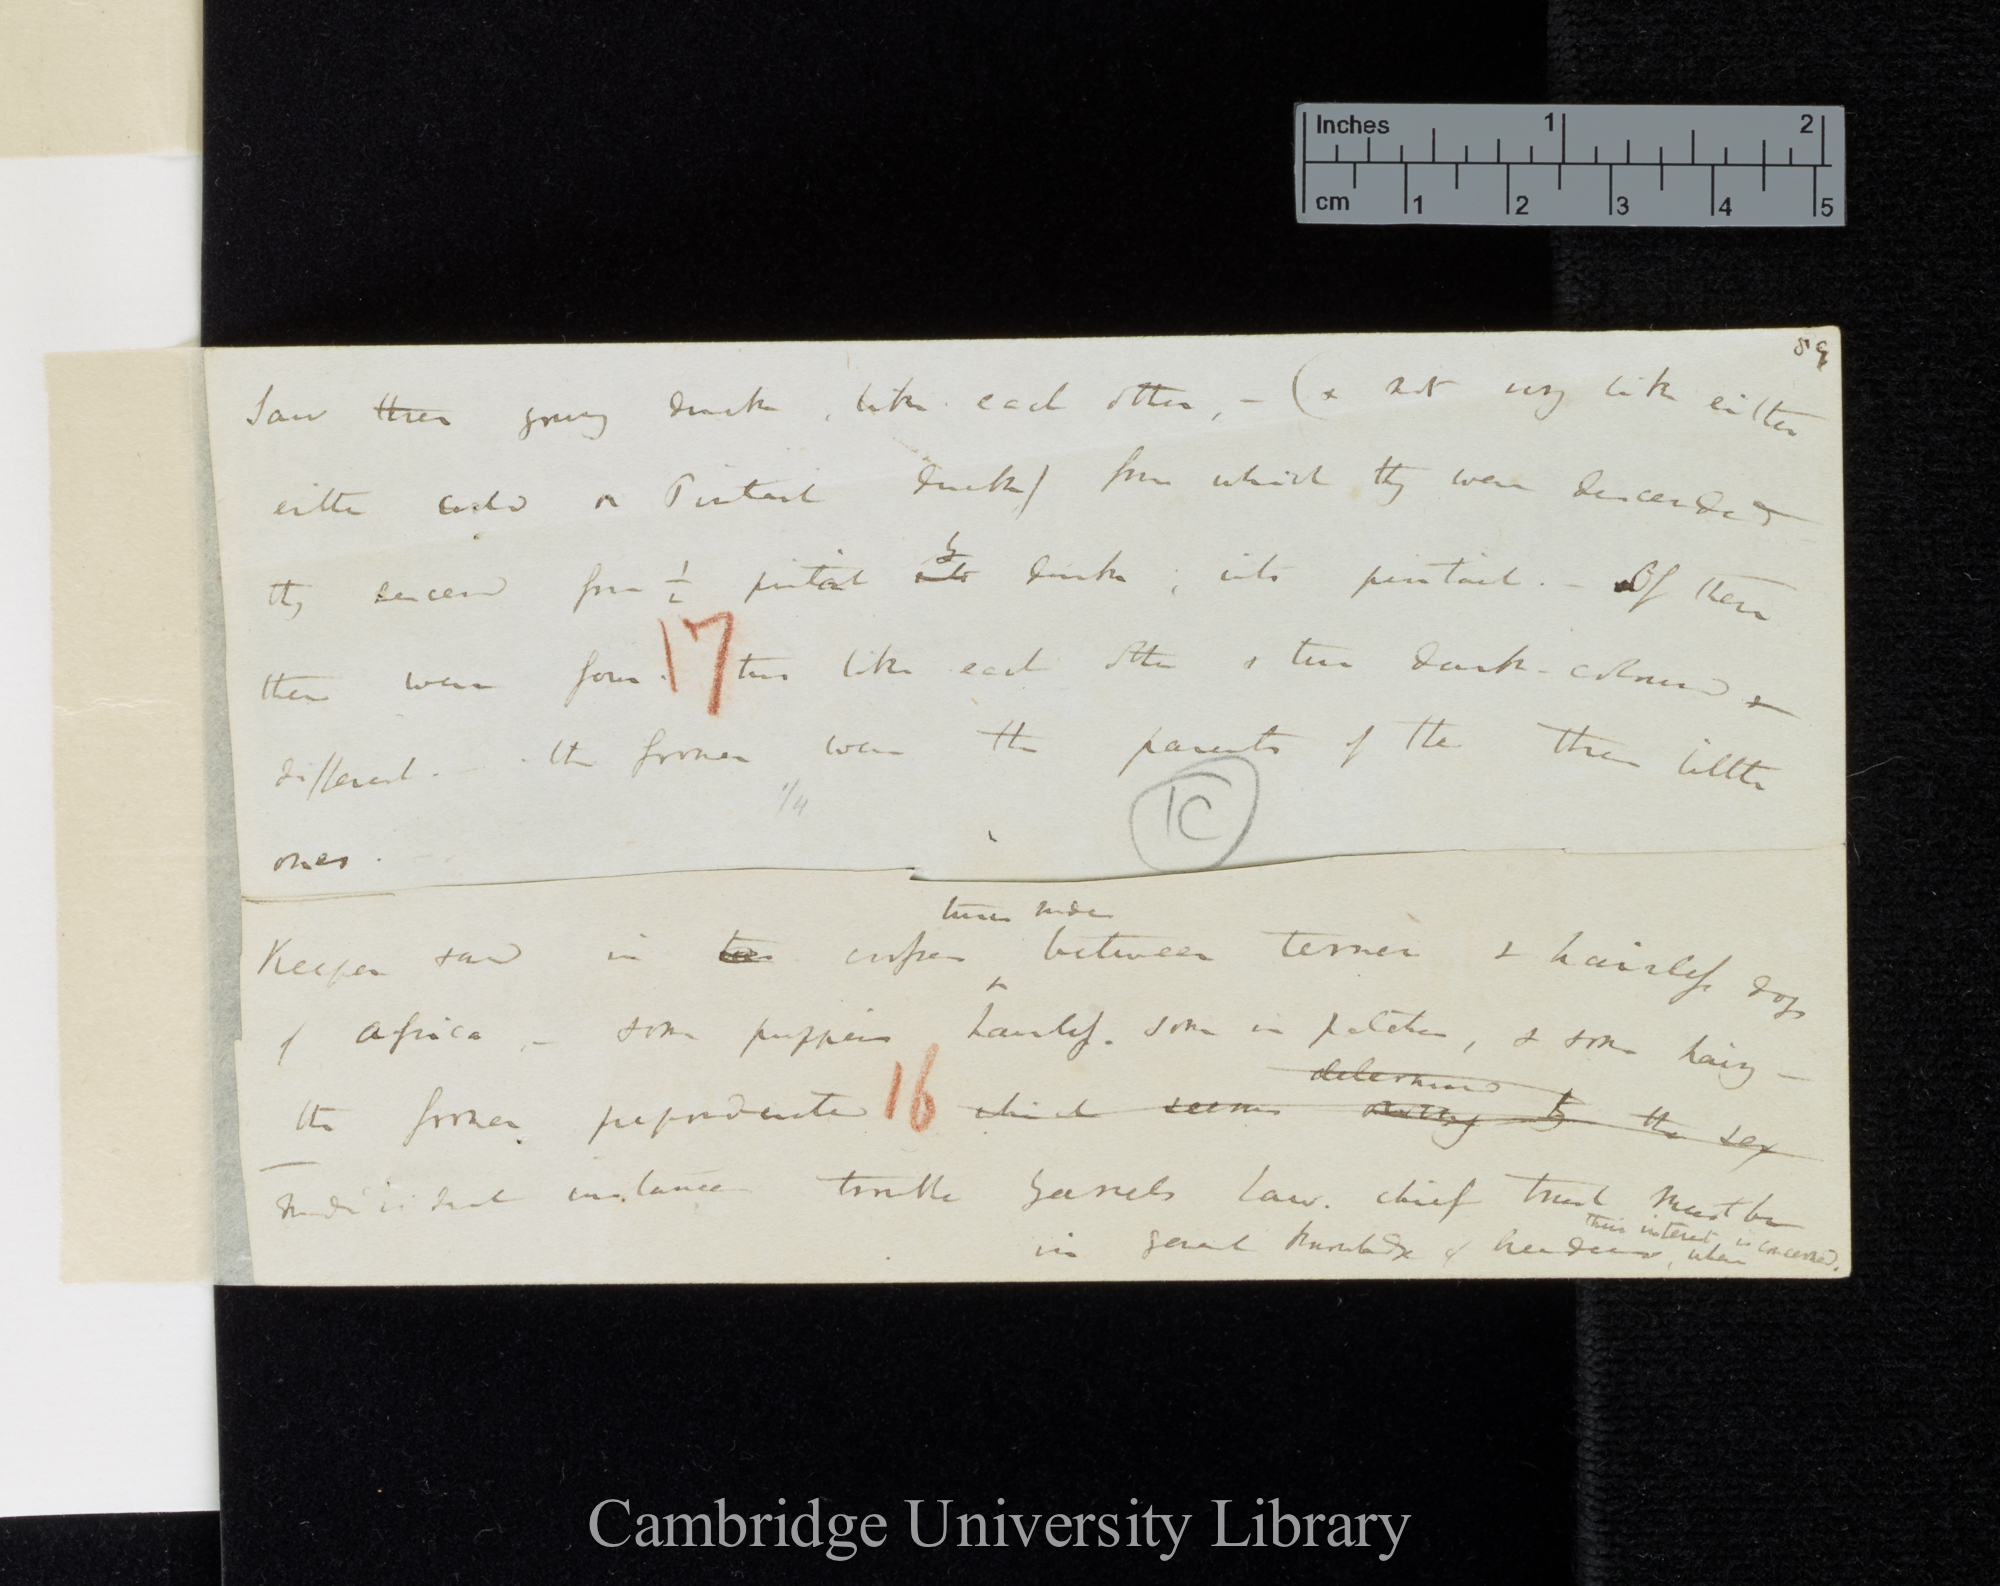 Inches 1 2
cm 1 2 3 4 5
89
Saw three young ducks, like each other, – (& not very like either
either  or Pintail ducks) from which they were descended
they descend from ½ pintail into by ducks; into pintail. – Of these
there were four. two like each other & two dark-coloured &
different. – the former were the parents of the three little
ones.
17
1/4
1C
two sides
Keeper said in two crosses between terrier & hairless dogs
of Africa, – some puppies hairless. some in patches, & some hairy –
determined
the former preponderated which seems owing to the sex
16
instance Yarrells law. chief trust must be
in general knowledge of breeders, when
their interest is concerned.
Cambridge University Library